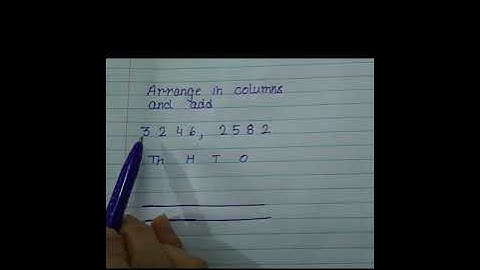 Arrange in columns
and add
3 2 4 6, 2 5 8 2
Th H T O